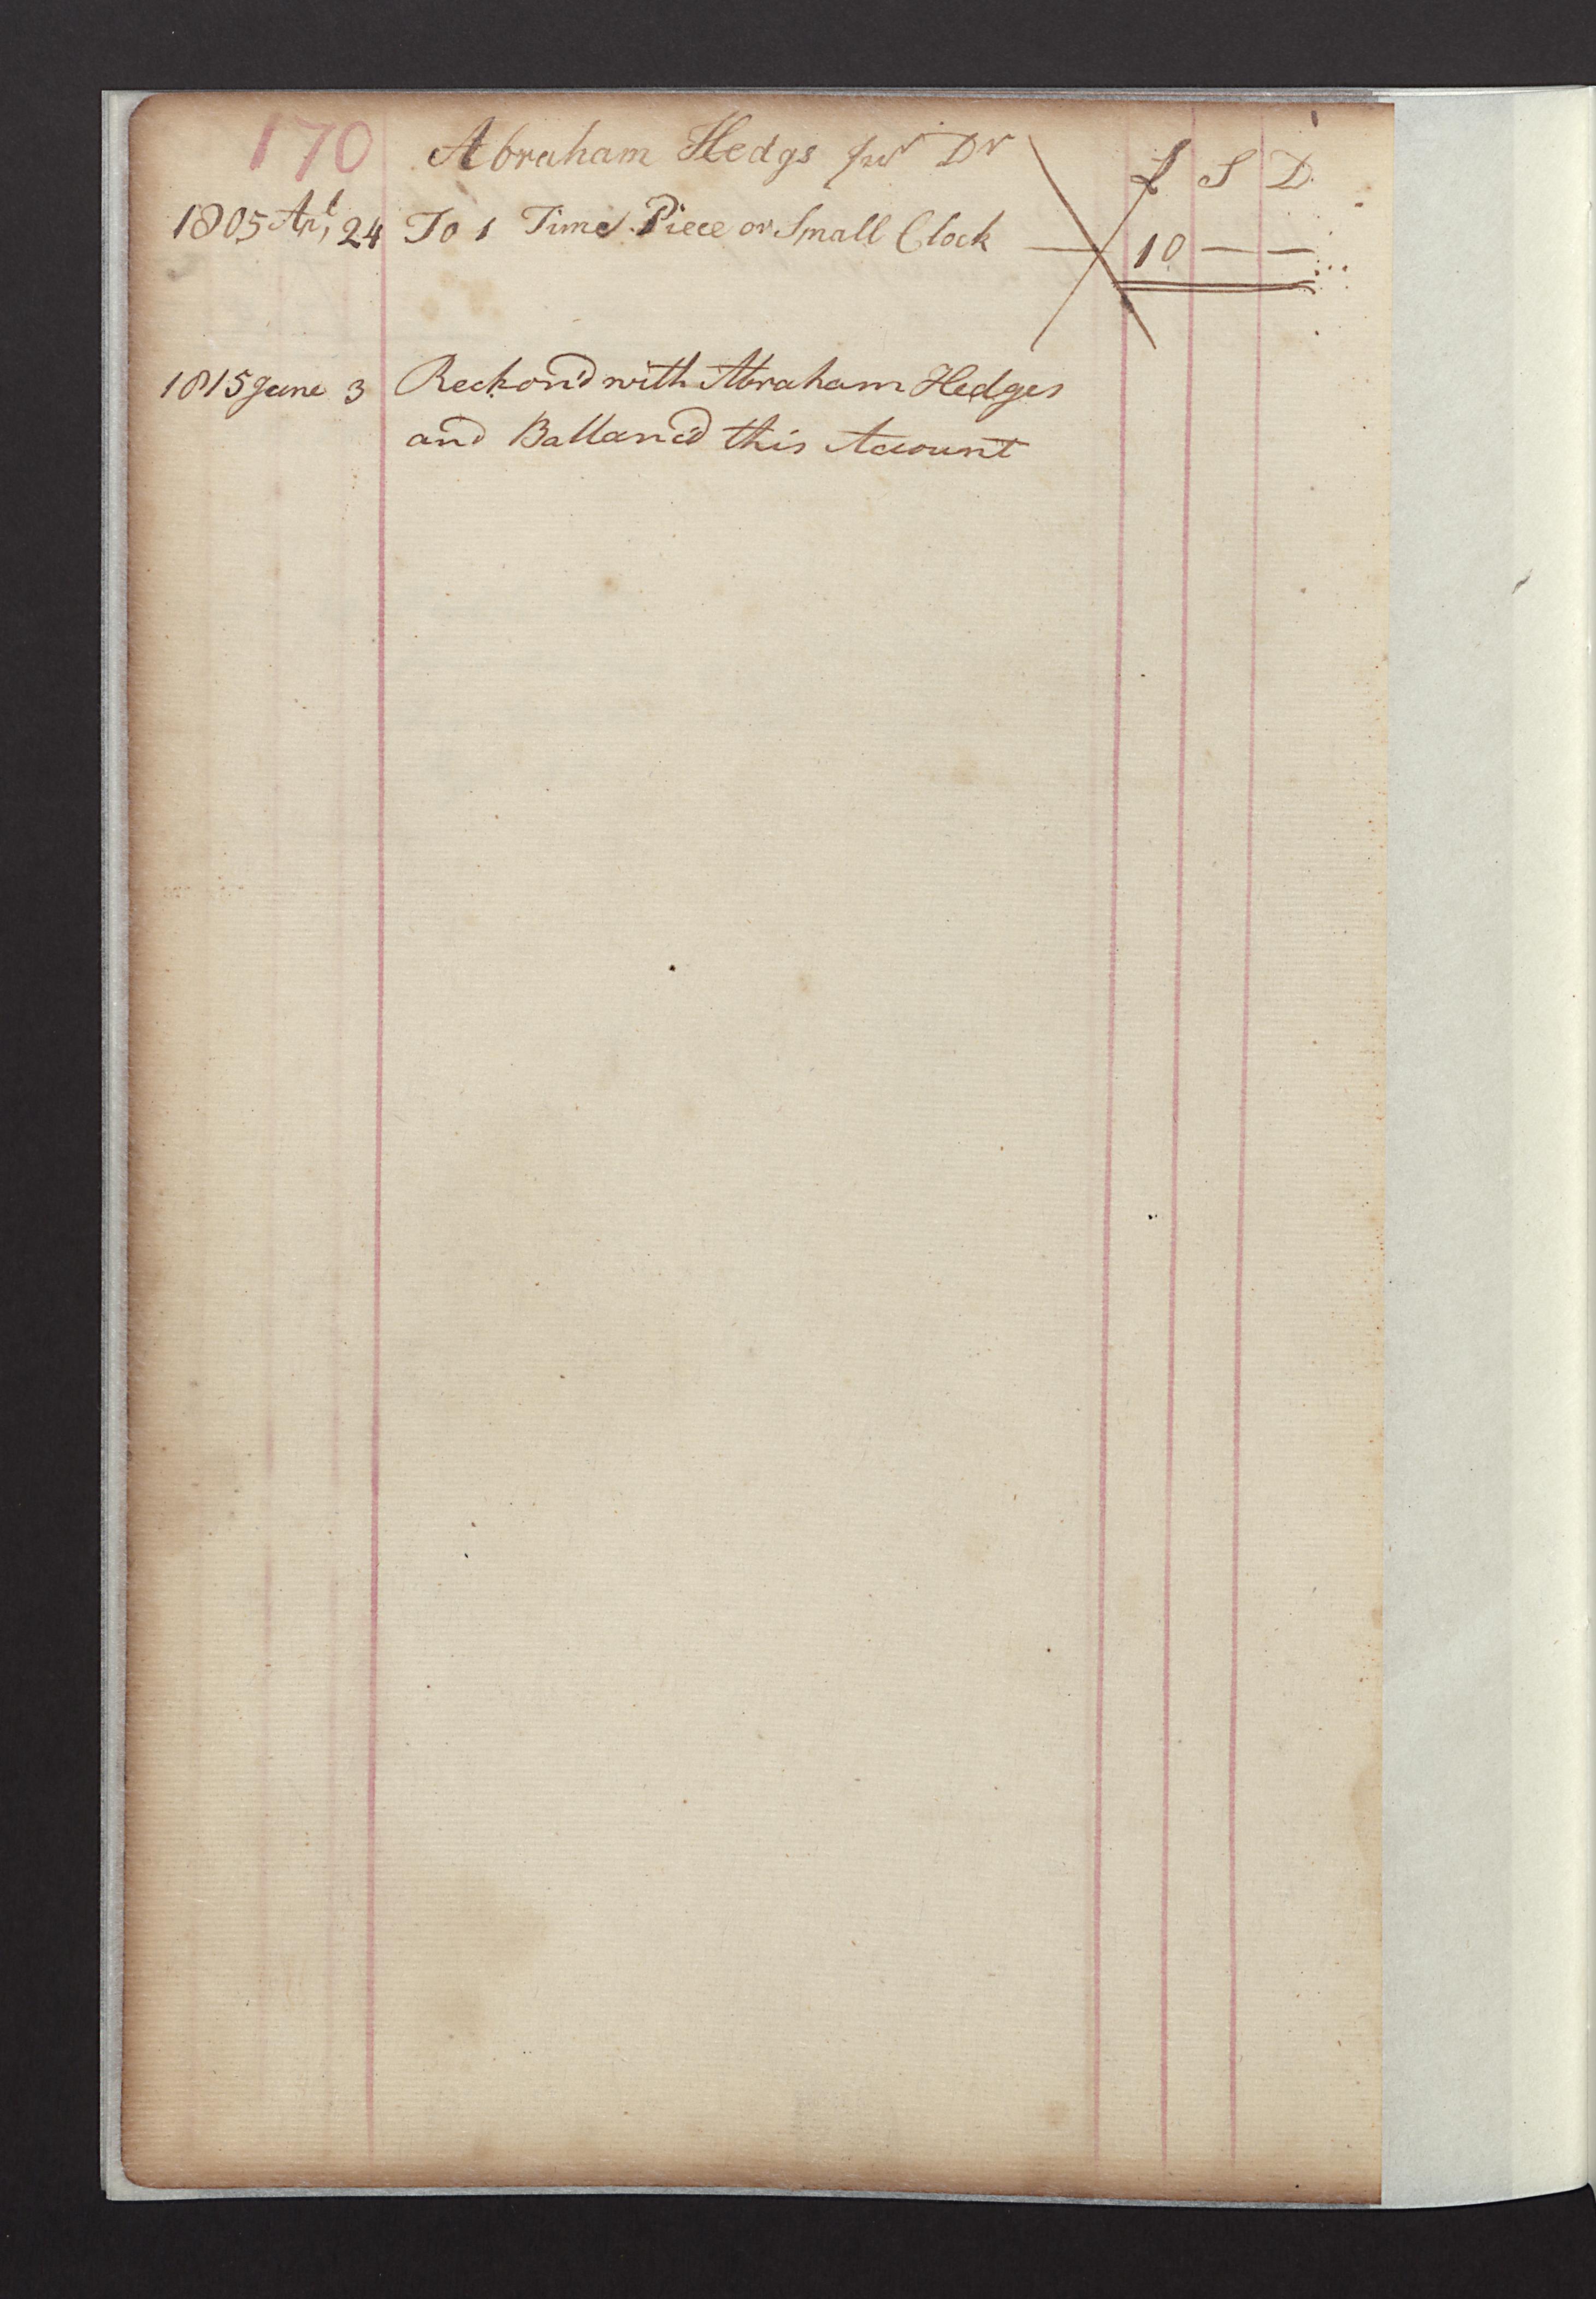 170 Abraham Hedgs Junr Dr £ S D
1805 Apl, 24 To 1 Time Piece or Small Clock — 10 — —
1815 June 3 Reckon'd with Abraham Hedges
and Ballanc'd this Account